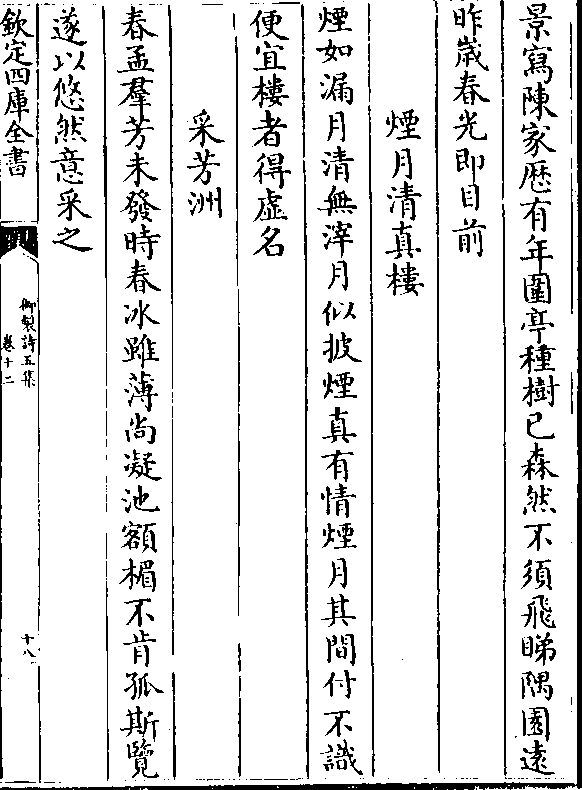 景寫陳家歴有年圍亭種樹已森然不須飛睇隅園逺
昨嵗春光即目前
煙月清真樓
煙如漏月清無滓月似披煙真有情煙月其間付不識
便宜樓者得虛名
采芳洲
春孟羣芳未發時春冰雖薄尚凝池額楣不肯孤斯覽
遂以悠然意采之
欽定四庫全書
御製詩五集
卷十二
十八